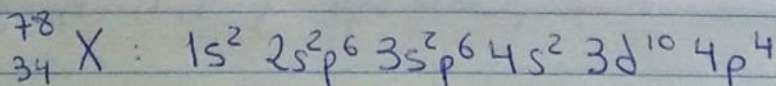 ⁷⁸₃₄X : 1s² 2s²p⁶ 3s²p⁶ 4s² 3d¹⁰ 4p⁴